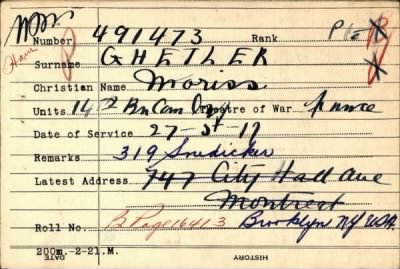 Number 491473 Rank Pte
Surname GHETLER
Christian Name Moriss
Units 14th Bn Can Theatre of War France
Date of Service 27-5-17
Remarks 319 Snedicker
Latest Address 747 City Hall Ave
Montreal
Roll No. B. Page 16413 Brooklyn NY USA.
200m.-2-21.M.
DATE
HISTORY